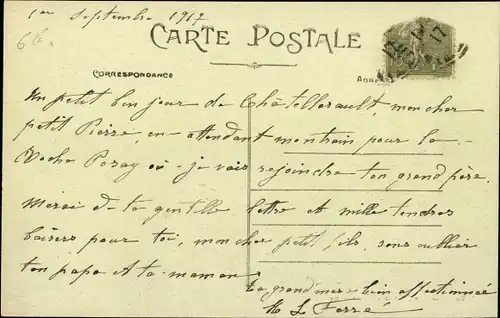 1er septembre 1917
CARTE POSTALE
CORRESPONDANCE
ADRE
Un petit bonjour de Châtellerault, mon cher
petit Pierre, en attendant mon train pour la
Roche Posay où je vais rejoindre ton grand père.
Merci de ta gentille lettre et mille tendres
baisers pour toi, mon cher petit fils, sans oublier
ton papa et ta maman.
Ta grand mère bien affectionnée
L Ferré